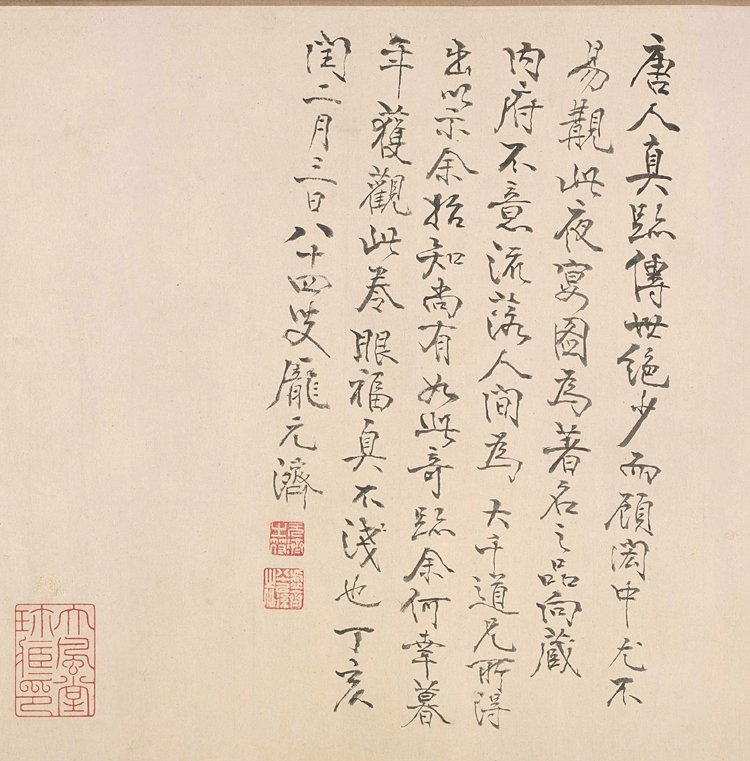 唐人真跡傳世絕少而顧閎中尤不
易覯此夜宴圖為著名之品向藏
內府不意流落人間為大千道兄所得
出以示余始知尚有如此奇跡余何幸暮
年獲觀此卷眼福真不淺也丁亥
閏二月三日八十四叟龐元濟
大風堂
珍藏印